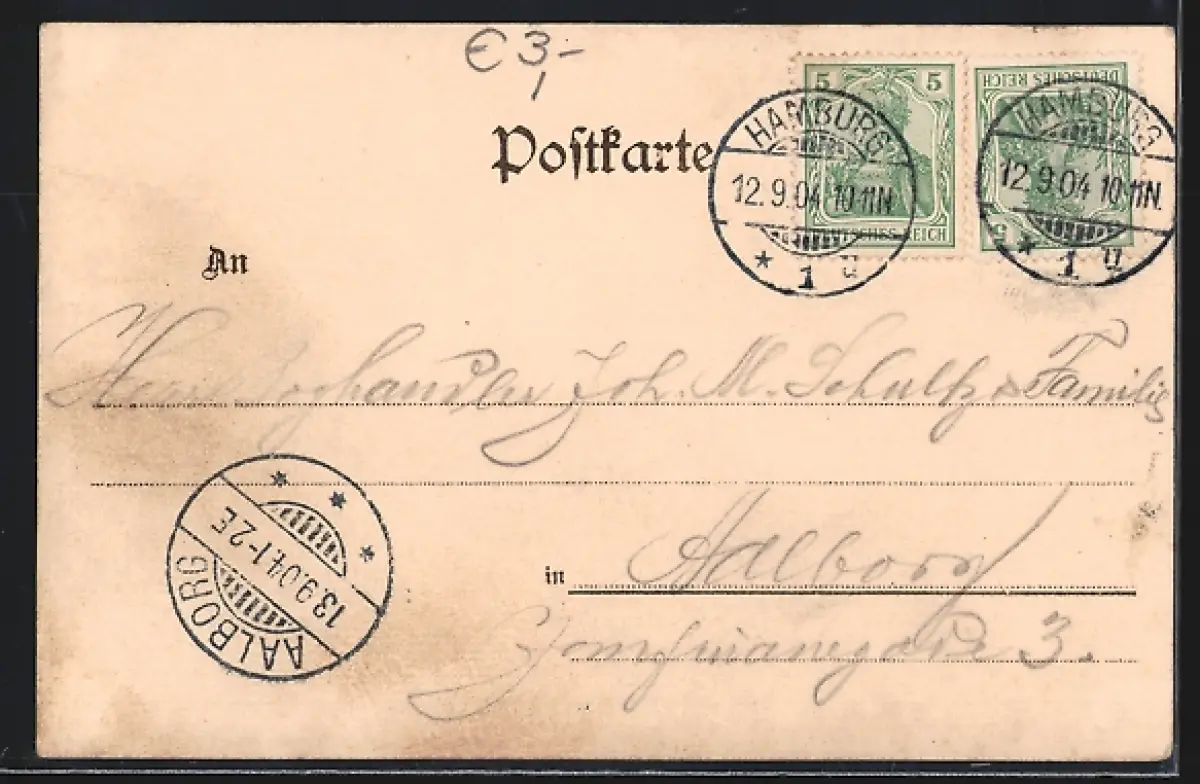 € 3,-
Postkarte
5 5
DEUTSCHES REICH
DEUTSCHES REICH
5
HAMBURG
12.9.04 10-11N
* 1 u
HAMBURG
12.9.04 10-11N.
* 1 u
An
Joh. M. Schultz & Familie
AALBORG
13.9.04.1-2E
in Aalborg
3.